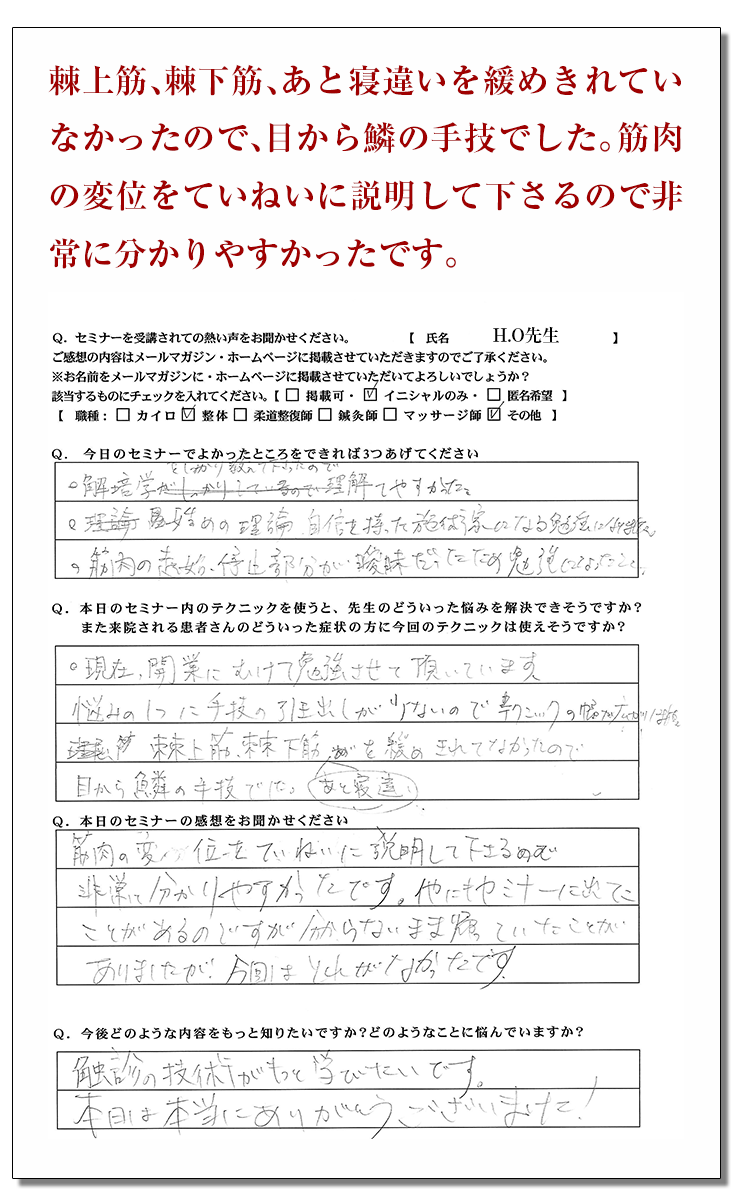 棘上筋、棘下筋、あと寝違いを緩めきれてい
なかったので、目から鱗の手技でした。筋肉
の変位をていねいに説明して下さるので非
常に分かりやすかったです。
Q. セミナーを受講されての熱い声をお聞かせください。 【 氏名 H.O先生 】
ご感想の内容はメールマガジン・ホームページに掲載させていただきますのでご了承ください。
※お名前をメールマガジンに・ホームページに掲載させていただいてよろしいでしょうか?
該当するものにチェックを入れてください。【 □ 掲載可・ ☑ イニシャルのみ・ □ 匿名希望 】
【 職種： □ カイロ ☑ 整体 □ 柔道整復師 □ 鍼灸師 □ マッサージ師 ☑ その他 】
Q. 今日のセミナーでよかったところをできれば3つあげてください
をしっかり教えて下さったので
○解培学がしっかりしているので理解しやすかった。
○理論 最始めの理論 自信を持った施術家になる勉強に
○筋肉の起始、停止部分が曖昧だったため勉強になったこと。
Q. 本日のセミナー内のテクニックを使うと、先生のどういった悩みを解決できそうですか?
また来院される患者さんのどういった症状の方に今回のテクニックは使えそうですか?
○現在、開業にむけて勉強させて頂いています
悩みの1つに手技の引き出しが少ないので テクニックの幅が広がり
棘上筋、棘下筋 を緩めきれてなかったので
目から鱗の手技でした。 あと寝違い
Q. 本日のセミナーの感想をお聞かせください
筋肉の変位をていねいに説明して下さるので
非常に分かりやすかったです。他にもセミナーに出た
ことがあるのですが分からないまま帰っていたことが
ありましたが、今回はそれがなかったです
Q. 今後どのような内容をもっと知りたいですか?どのようなことに悩んでいますか?
触診の技術がもっと学びたいです。
本日は本当にありがとうございました!